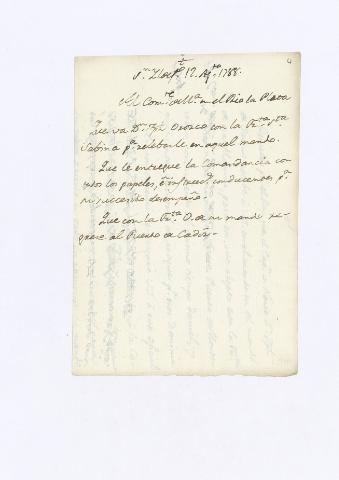 Sn. Ildefo. 12 Agto. 1788.
Al Comte. de Ma. en el Rio la Plata
Que va Dn. Orozco con la Fragta. Sta.
Sabina pa. relebarle en aquel mando.
Que le entregue la Comandancia co
todos los papeles, é conducentes pa.
su succesibo desempeño.
Que con la Fragta. de su mando re
grese al Puerto de Cadiz.